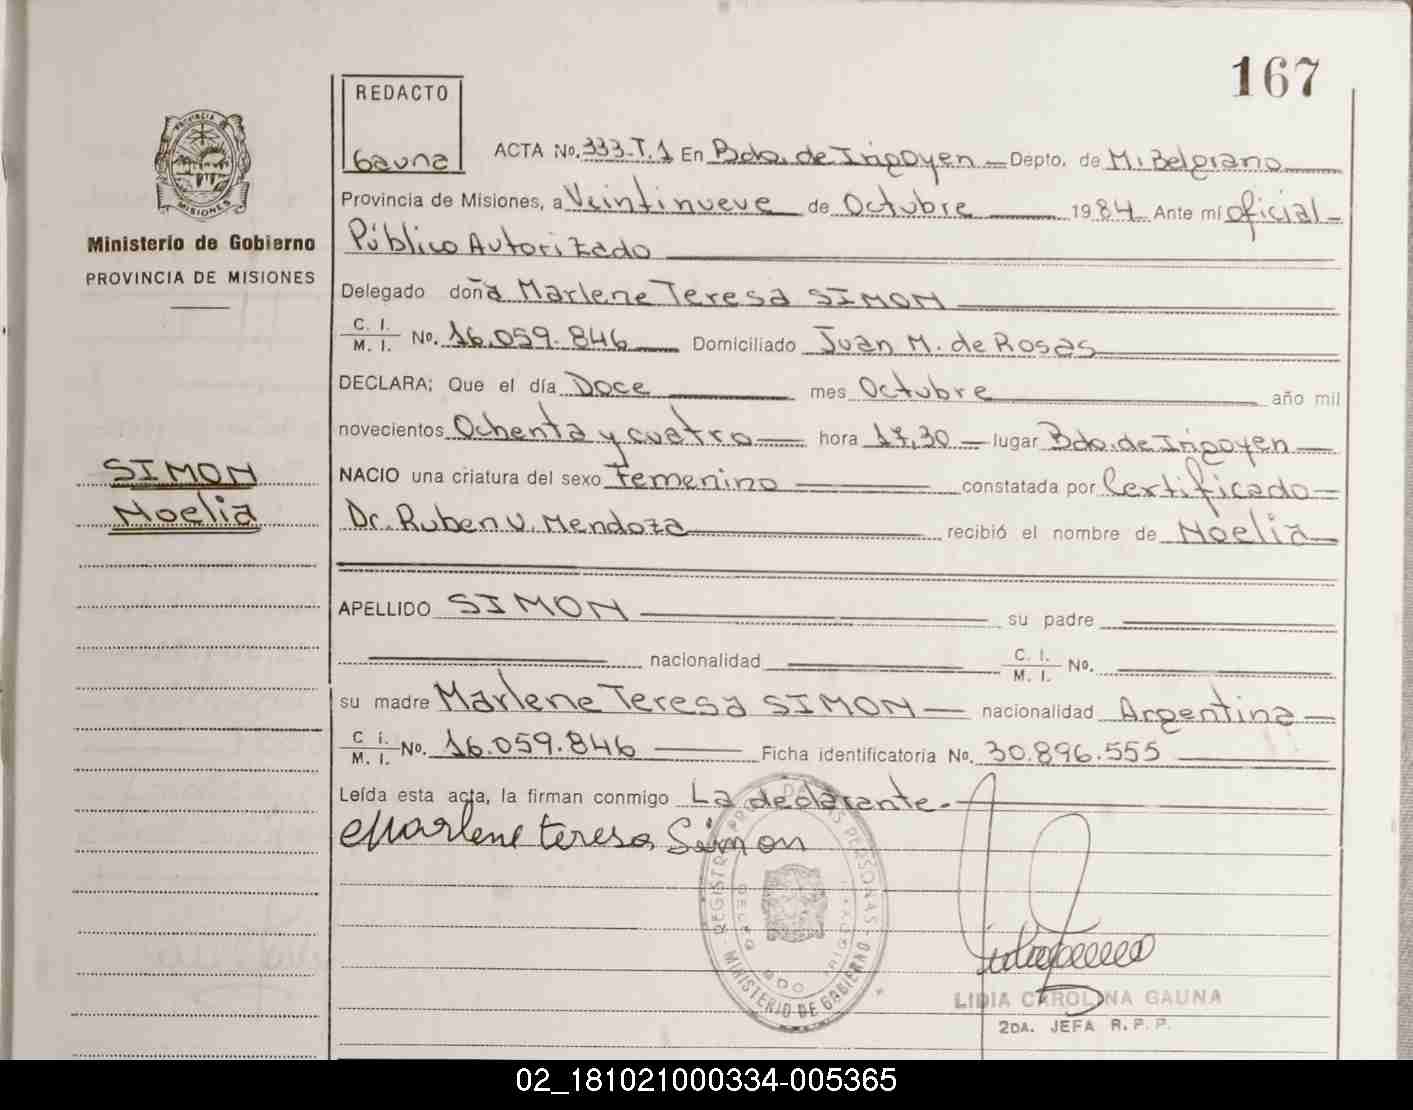 167
REDACTO
Gauna
ACTA No. 333-T.1 En Bdo. de Irigoyen Depto. de M. Belgrano
Provincia de Misiones, a Veintinueve de Octubre 1984 Ante mí oficial
Público Autorizado
MISIONES
Ministerio de Gobierno
PROVINCIA DE MISIONES
Delegado doña Marlene Teresa SIMON
C. I. M. I. No. 16.059.846 Domiciliado Juan M. de Rosas
DECLARA; Que el día Doce mes Octubre año mil
novecientos Ochenta y cuatro hora 17,30 lugar Bdo. de Irigoyen
NACIO una criatura del sexo Femenino constatada por Certificado
SIMON
Noelia
Dr. Ruben V. Mendoza recibió el nombre de Noelia
APELLIDO SIMON su padre
nacionalidad C. I. M. I. No.
su madre Marlene Teresa SIMON nacionalidad Argentina
C. I. M. I. No. 16.059.846 Ficha identificatoria No. 30.896.555
Leída esta acta, la firman conmigo La declarante.
Marlene teresa Simon
MINISTERIO DE GOBIERNO
LIDIA CAROLINA GAUNA
2DA. JEFA R. P. P.
02_181021000334-005365